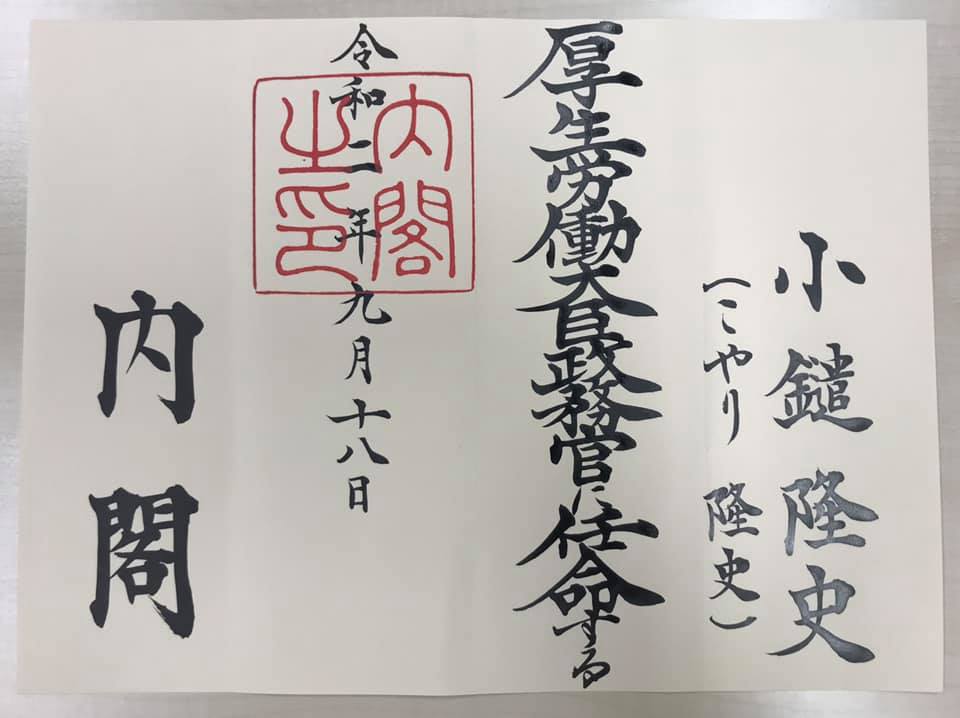 小鑓 隆史
(こやり 隆史)
厚生労働大臣政務官に任命する
令和二年九月十八日
内閣之印
内閣